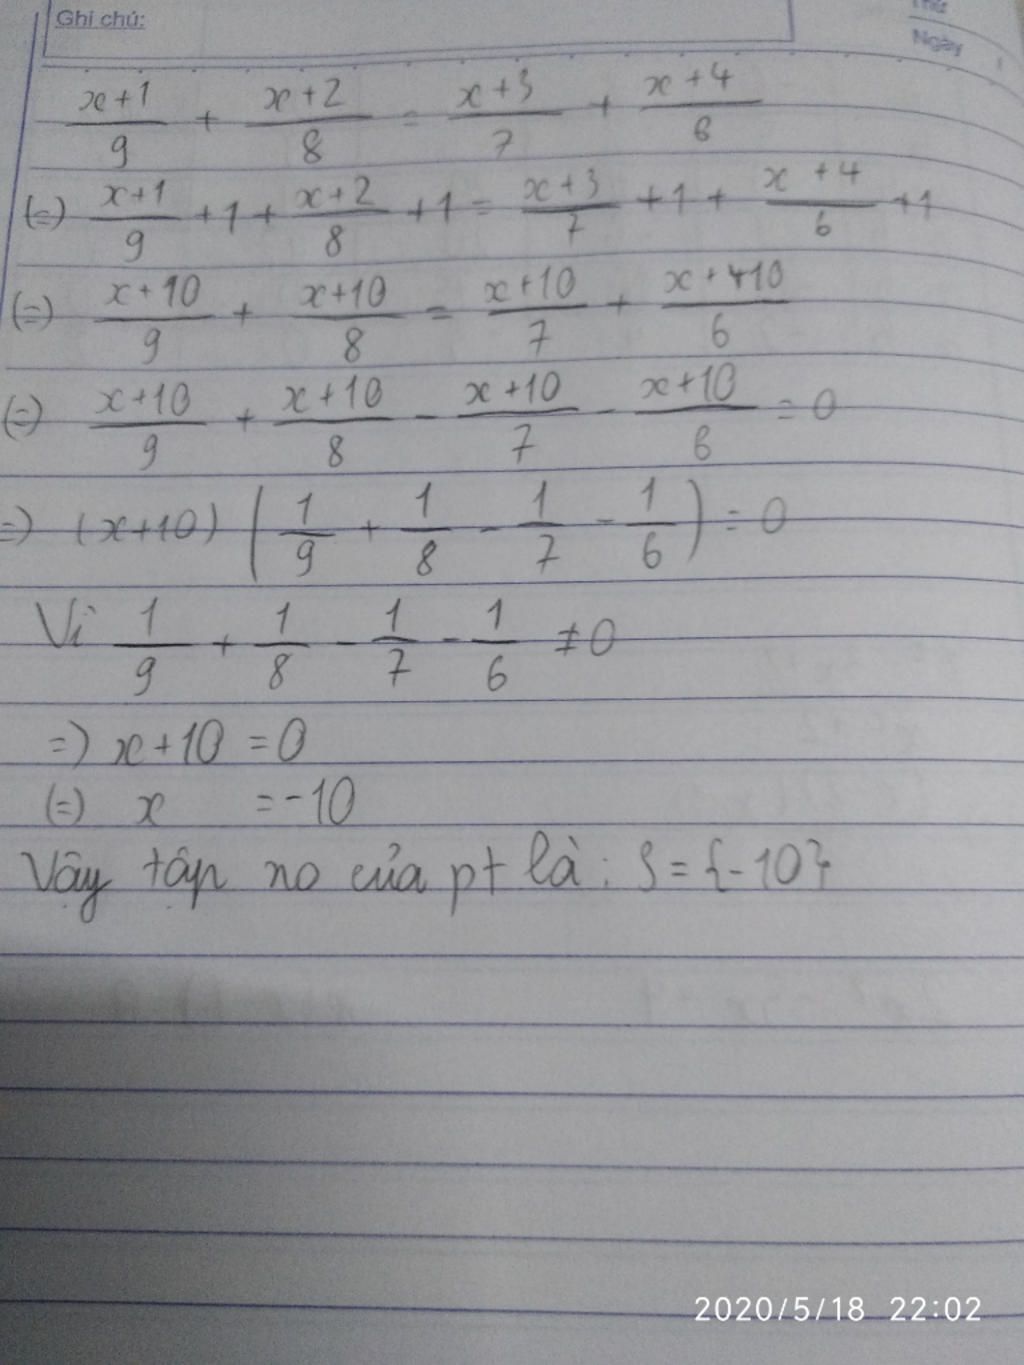 Ghi chú:
Thứ
Ngày
x+1/9 + x+2/8 = x+3/7 + x+4/6
(=) x+1/9 +1+ x+2/8 +1= x+3/7 +1+ x+4/6 +1
(=) x+10/9 + x+10/8 = x+10/7 + x+410/6
(=) x+10/9 + x+10/8 - x+10/7 - x+10/6 =0
=) (x+10) (1/9 + 1/8 - 1/7 - 1/6) = 0
Vì 1/9 + 1/8 - 1/7 - 1/6 ≠0
=) x+10 =0
(=) x =-10
Vậy tập no của pt là: S={-10}
2020/5/18 22:02